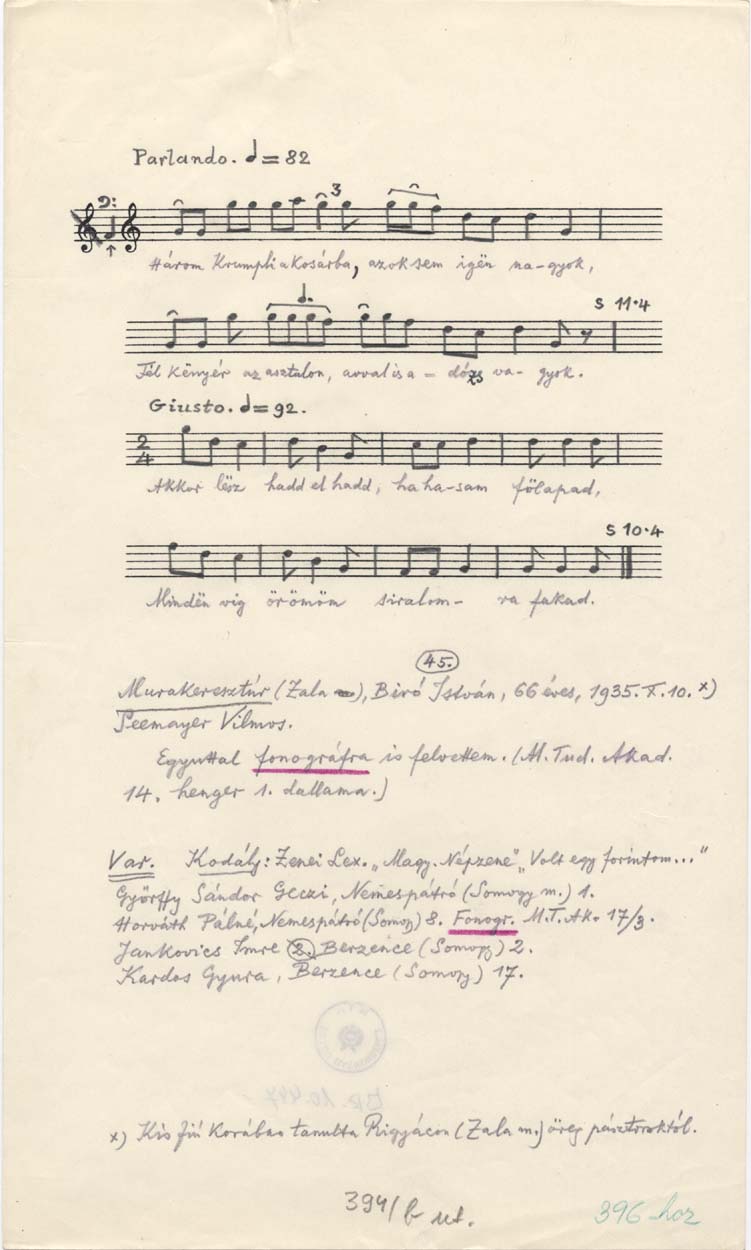 Parlando. 𝅗𝅥 = 82
3
Három Krumpli a kosárba, azok sem igën na-gyok,
S 11·4
Fél Kënyér az asztalon, avval is a - dózs va- gyok.
Giusto. 𝅗𝅥 = 92.
2
4
Akkor lësz hadd el hadd, ha ha-sam fölapad,
S 10·4
Mindën víg örömöm siralom- ra fakad.
45.
Murakeresztúr (Zala), Biró István, 66 éves, 1935. X. 10. x)
Seemayer Vilmos.
Egyuttal fonográfra is felvettem. (M. Tud. Akad.
14. henger 1. dallama.)
Var. Kodály: Zenei Lex. „Magy. Népzene" „Volt egy forintom..."
Györffy Sándor Geczi, Nemespátró (Somogy m.) 1.
Horváth Pálné, Nemespátró (Somogy) 8. Fonogr. M.T.Ak. 17/3.
Jankovics Imre 2. Berzence (Somogy) 2.
Kardos Gyura, Berzence (Somogy) 17.
x) Kis fiú korában tanulta Rigyácon (Zala m.) öreg pásztoroktól.
394/b ut.
396 hoz